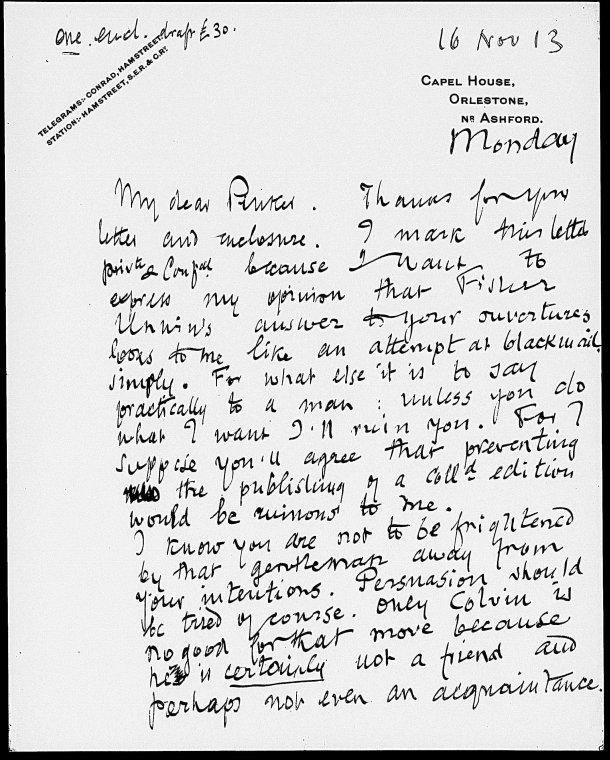 One encl. draft £30.
16 Nov 13
TELEGRAMS:- CONRAD, HAMSTREET.
STATION:- HAMSTREET, S.E.R. & C.Ry.
CAPEL HOUSE,
ORLESTONE,
NR ASHFORD.
Monday
My dear Pinker. Thanks for your
letter and enclosure. I mark this letter
private & Confal because I want to
express my opinion that Fisher
Unwin's answer to your ouvertures
looks to me like an attempt at blackmail
simply. For what else it is to say
practically to a man: unless you do
what I want I'll ruin you. For I
suppose you'll agree that preventing
the publishing of a colld edition
would be ruinous to me.
I know you are not to be frightened
by that gentleman away from
your intentions. Persuasion should
be tried of course. Only Colvin is
no good for that move because
he is certainly not a friend and
perhaps not even an acquaintance.